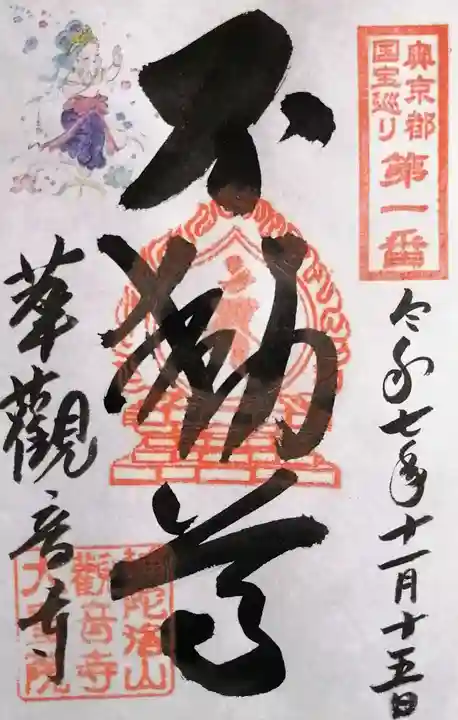 奥京都
国宝巡り
第一番
令和七年十一月十五日
不動尊
華観音寺
補陀洛山
観音寺
大聖院